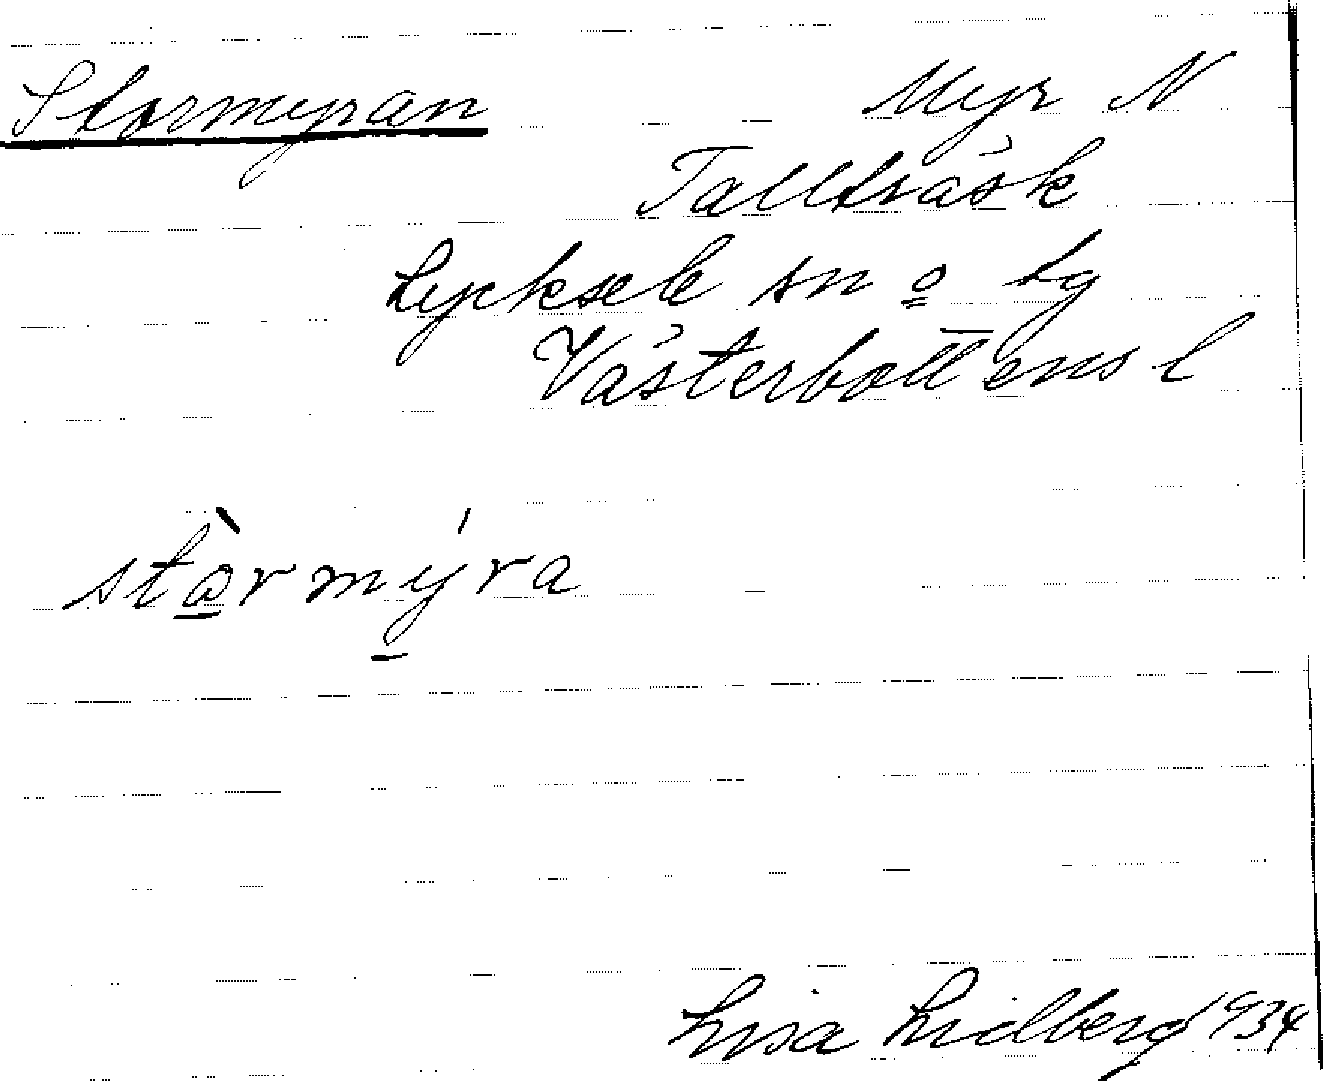 Stormyran Myr N
Tallträsk
Lycksele sn o tg
Västerbottens l
stòrmýra
Lisa Lidberg 1934